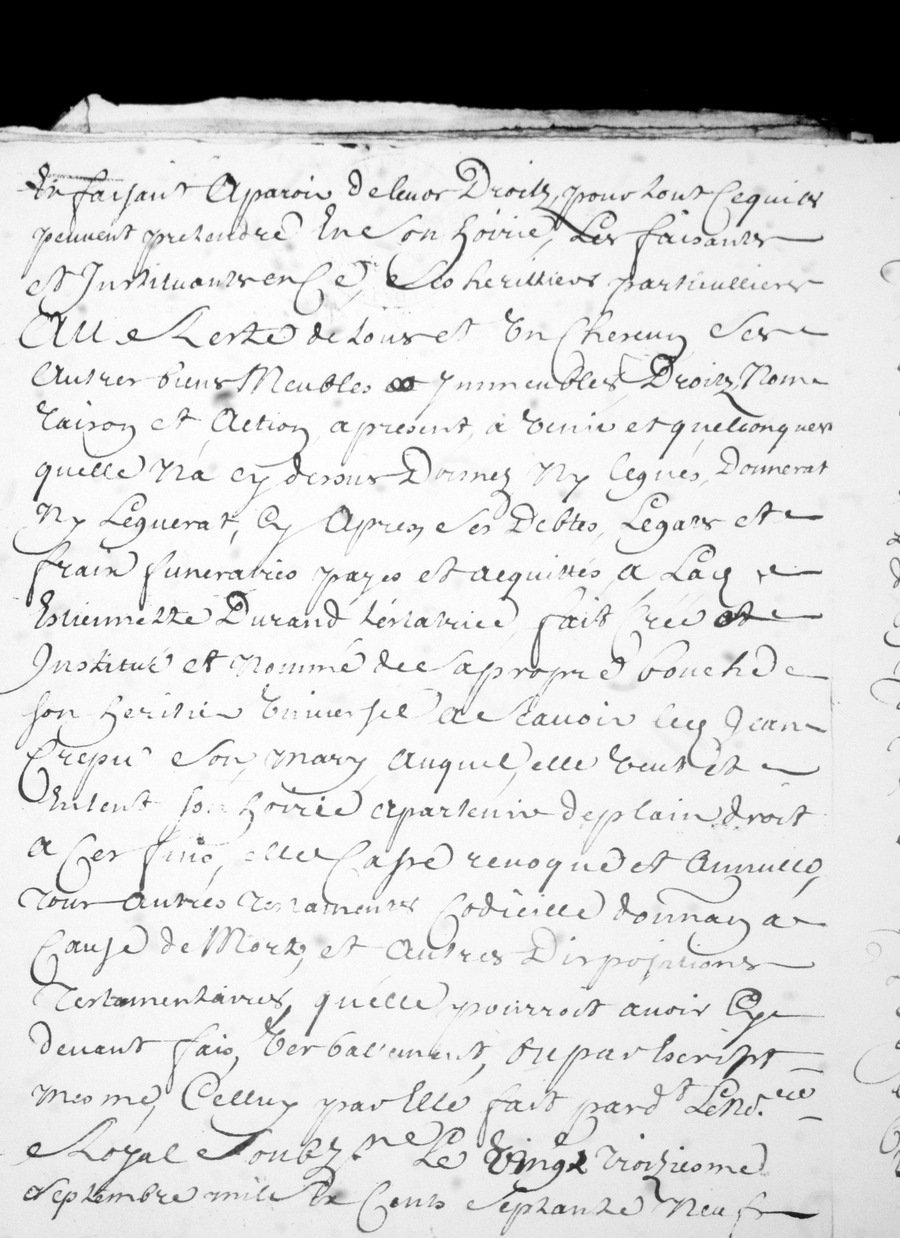 En faisant Aparoir de leurs Droits, pour tout Ce qu'ils
peuvent pretendre En Son hoirie, Les faisants
et Instituants en Ce, Ses heritiers particulliers
Au Reste de tous et Un Chacun Ses
Autres biens Meubles et Immeubles, Droits, Noms
Raison et Action, a present, à Venir et quelconques
quelle N'a cy dessus Donnez Ny legués, Donnerat
Ny Leguerat, Cy Aprez Ses Debtes, Legats et
frais funeraires payes et acquittés, a Lad.
Estiennette Durand testatrice, fait Créé et
Institué et Nommé de Sa propre bouche
Son heritier Universel a Scavoir led. Jean
Crepu Son mary, auquel elle Veut et
Entent Son hoirie apartenir de plain droit
A Ces fins, elle Casse revoque et Annulle,
Tous Autres Testaments Codicille donnaon à
Cause de Mort, et Autres Dispositions
Testamentaires, quelle pourroit avoir Cy
devant fais, Verballement, Ou par Escript
mesme, Celluy par Elle fait pard.t Le No.re
Royal Soubz.ne Le Vingt Troiziesme
Septembre mile Six Cents Septante Neuf